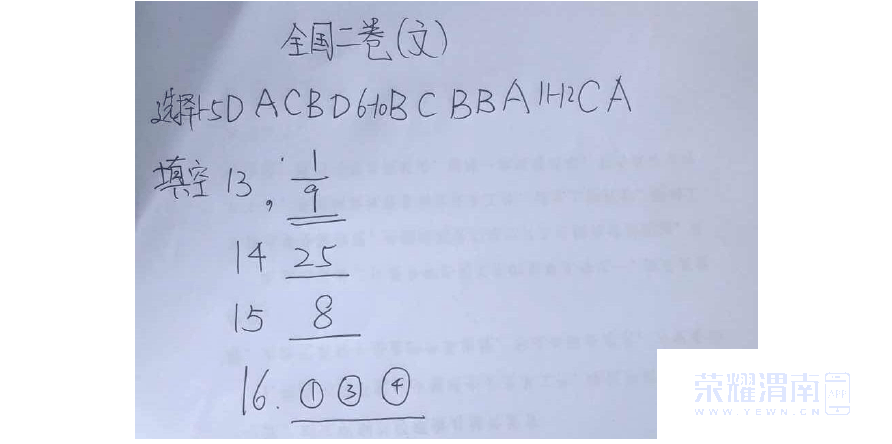 全国二卷(文)
选择1-5DACBD6-10BCBBA11-12CA
填空13, 1/9
14 25
15 8
16. ①③④
荣耀渭南APP
WWW.YEWN.CN